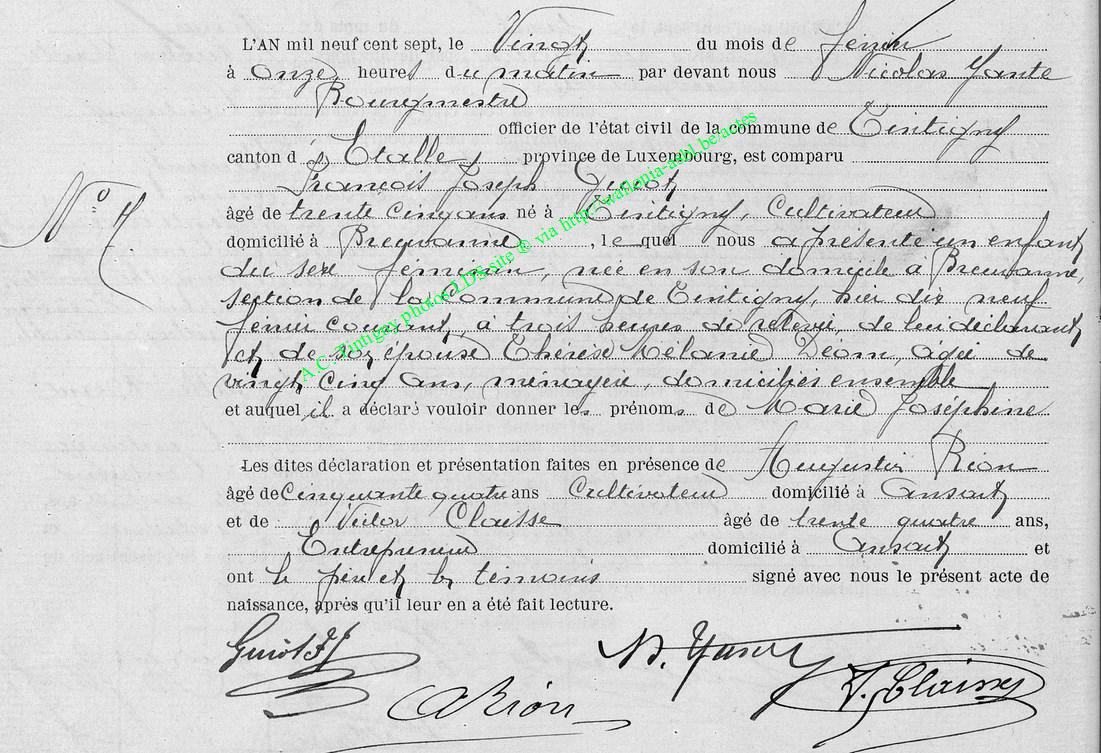 L'AN mil neuf cent sept, le Vingt du mois de février
à onze heures du matin par devant nous Nicolas Yante
Bourgmestre
officier de l'état civil de la commune de Tintigny
canton d'Etalle, province de Luxembourg, est comparu
François Joseph Guiot
âgé de trente cinq ans né à Tintigny, Cultivateur
domicilié à Breuvanne, lequel nous a présenté un enfant
du sexe féminin, née en son domicile à Breuvanne,
section de la Commune de Tintigny, hier dix neuf
février courant, à trois heures de relevée, de lui déclarant
et de son épouse Thérèse Mélanie Déom, âgée de
vingt cinq ans, ménagère, domiciliés ensemble
et auquel il a déclaré vouloir donner les prénoms de Marie Joséphine
Les dites déclaration et présentation faites en présence de Augustin Rion
âgé de Cinquante quatre ans Cultivateur domicilié à Ansart
et de Victor Claisse âgé de trente quatre ans,
Entrepreneur domicilié à Ansart et
ont le père et les témoins signé avec nous le présent acte de
naissance, après qu'il leur en a été fait lecture.
N° 7.
A.C. Tintigny photos LDS site ® via http://wallonia-asbl.be/actes
Guiot F J N. Yante
A Rion V. Claisse